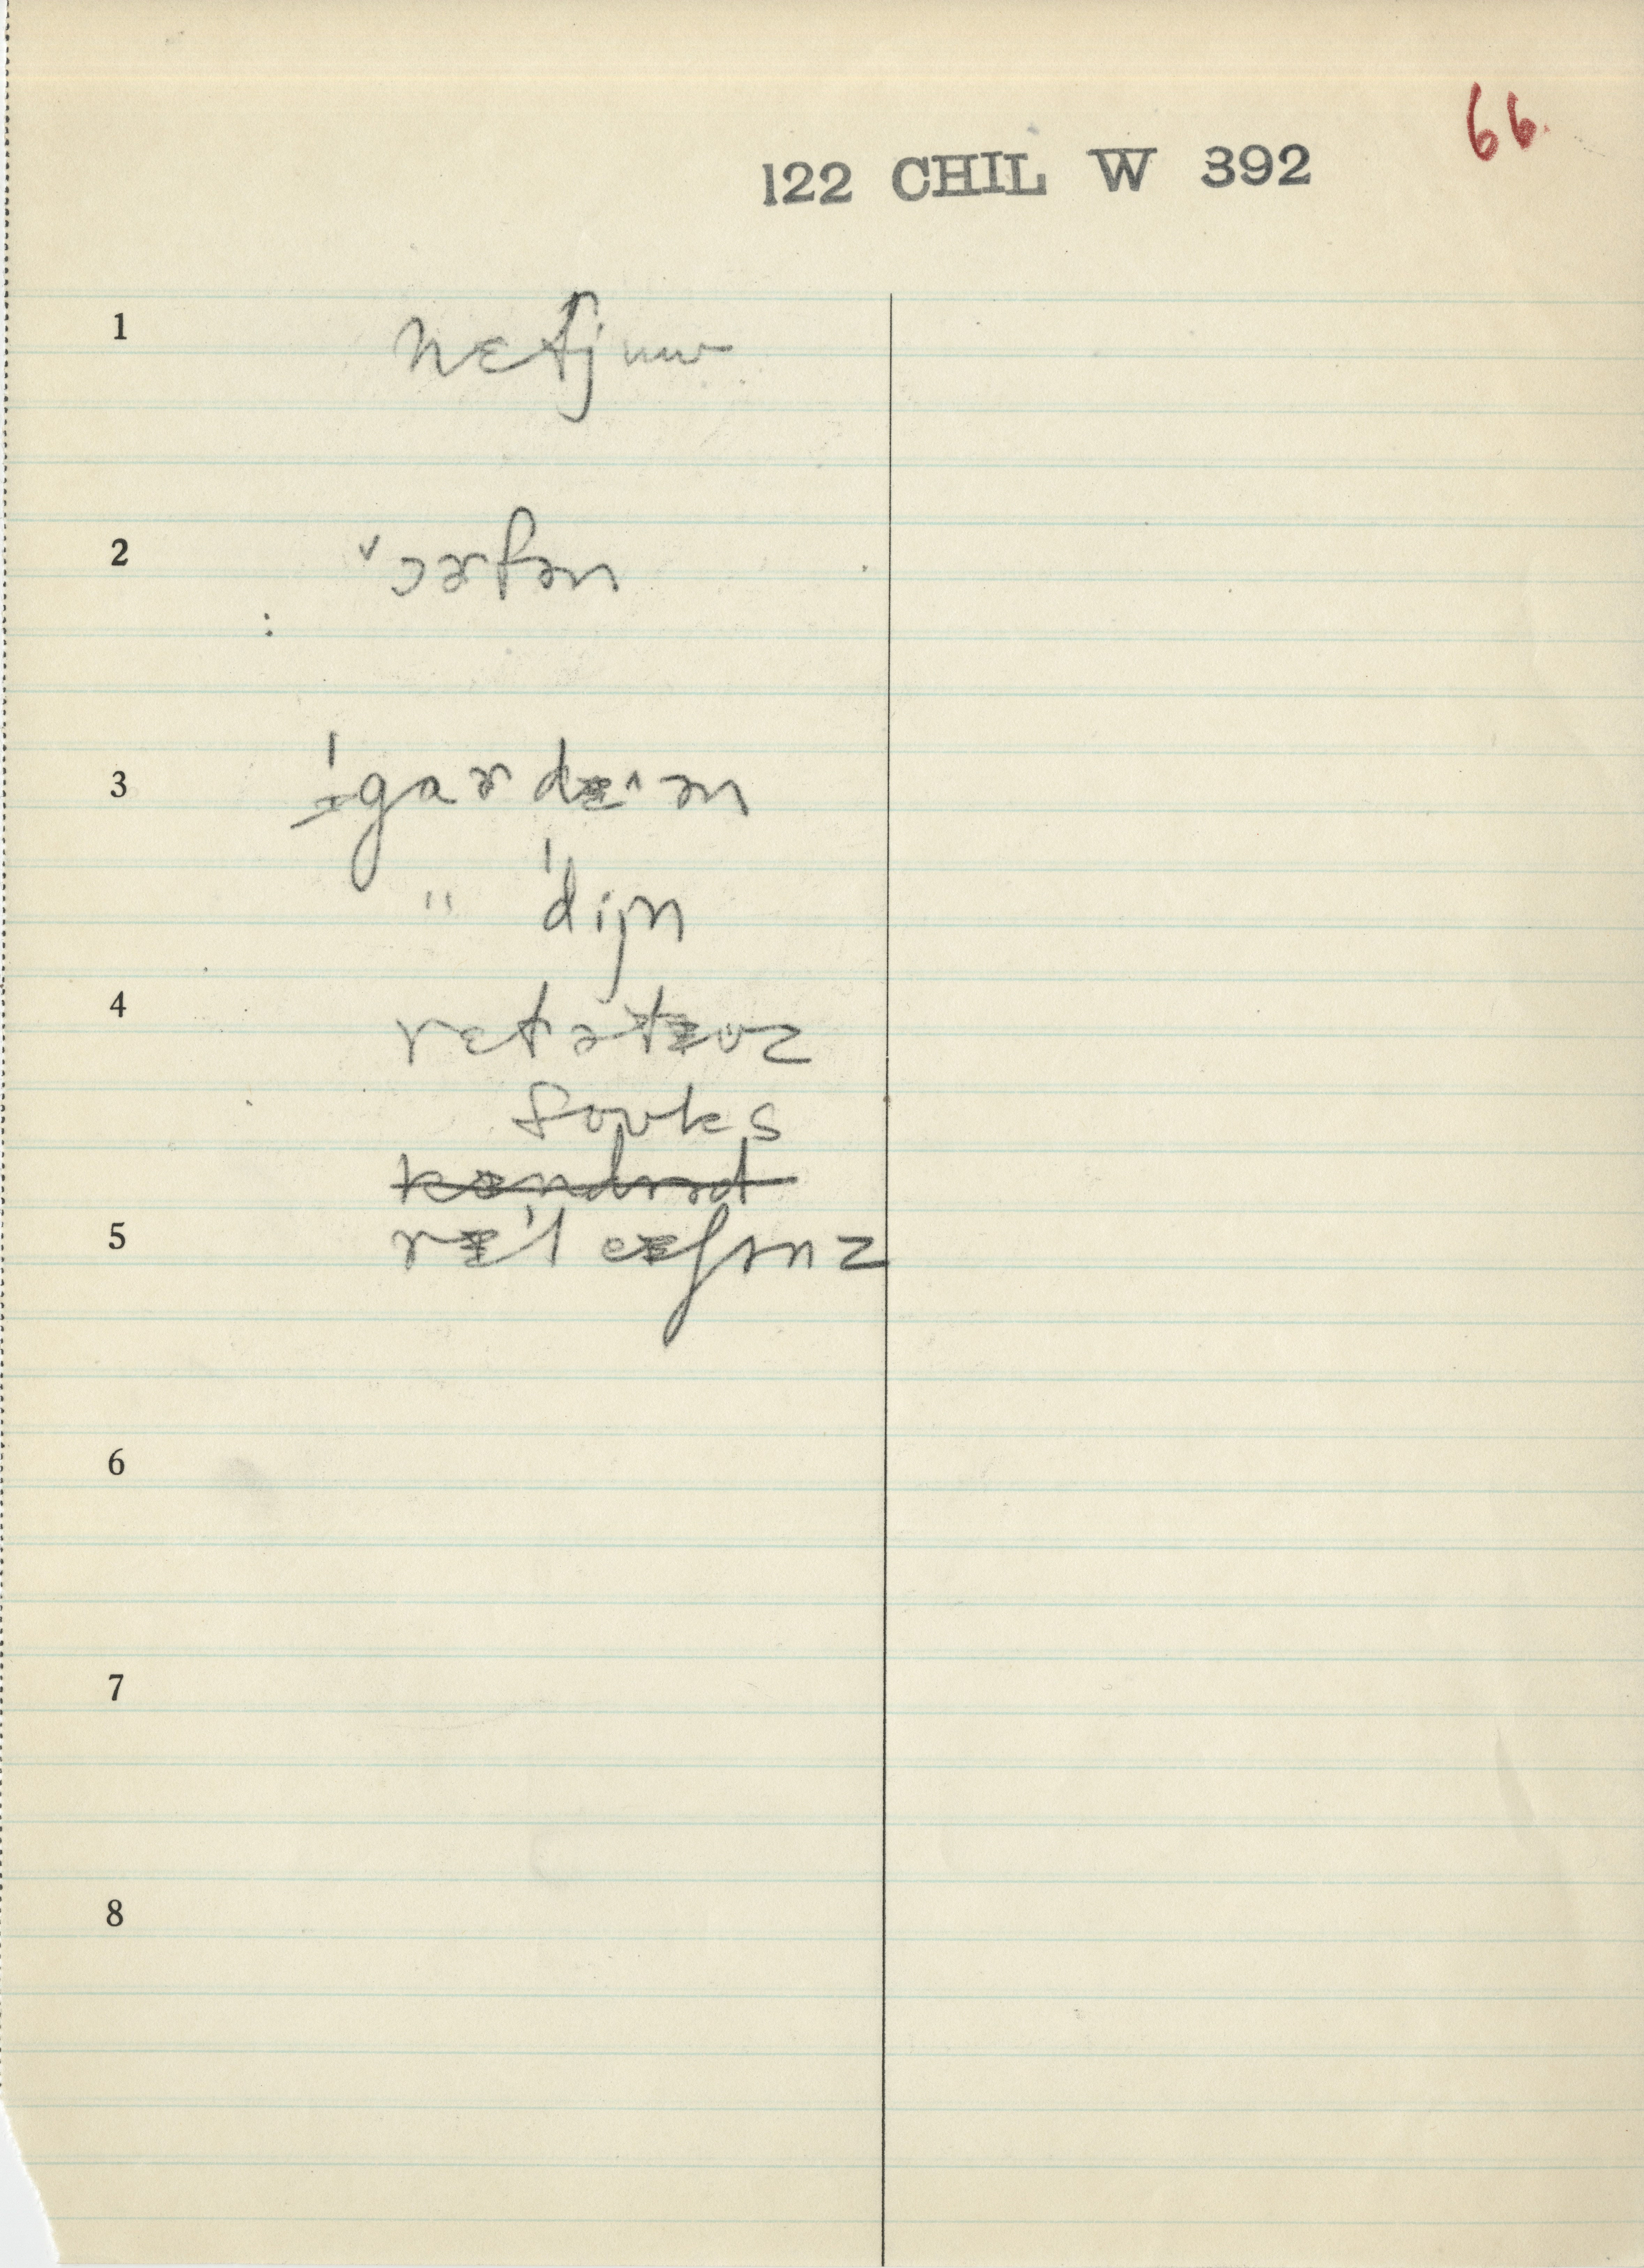 66.
122 CHIL W 392
1 nɛfjuw
2 ˅ɔərfən
3 gardɪˆən
" ˈdijn
4 rɛtətɪvz
foʊks
5 rɪˈleɪʃənz
6
7
8